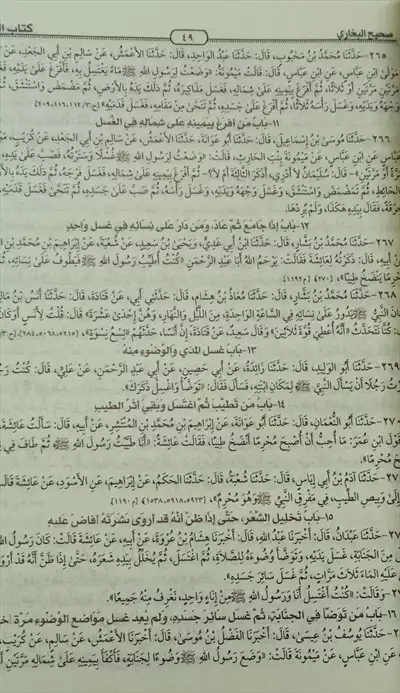 صحيح البخاري ٤٩ كتاب ال
٢٦٥- حَدَّثَنَا مُحَمَّدُ بْنُ مَحْبُوبٍ، قَالَ: حَدَّثَنَا عَبْدُ الْوَاحِدِ، قَالَ: حَدَّثَنَا الْأَعْمَشُ، عَنْ سَالِمِ بْنِ أَبِي الْجَعْدِ، عَنْ
مَوْلَى ابْنِ عَبَّاسٍ، عَنِ ابْنِ عَبَّاسٍ، قَالَ: قَالَتْ مَيْمُونَةُ: «وَضَعْتُ لِرَسُولِ اللهِ ﷺ مَاءً يَغْتَسِلُ بِهِ، فَأَفْرَغَ عَلَى يَدَيْهِ، فَغَسَلَ
مَرَّتَيْنِ مَرَّتَيْنِ أَوْ ثَلَاثًا، ثُمَّ أَفْرَغَ بِيَمِينِهِ عَلَى شِمَالِهِ، فَغَسَلَ مَذَاكِيرَهُ، ثُمَّ دَلَكَ يَدَهُ بِالْأَرْضِ، ثُمَّ مَضْمَضَ وَاسْتَنْشَقَ، ثُمَّ
وَجْهَهُ وَيَدَيْهِ، وَغَسَلَ رَأْسَهُ ثَلَاثًا، ثُمَّ أَفْرَغَ عَلَى جَسَدِهِ، ثُمَّ تَنَحَّى مِنْ مَقَامِهِ، فَغَسَلَ قَدَمَيْهِ»
١١- بَابُ مَنْ أَفْرَغَ بِيَمِينِهِ عَلَى شِمَالِهِ فِي الْغُسْلِ
٢٦٦- حَدَّثَنَا مُوسَى بْنُ إِسْمَاعِيلَ، قَالَ: حَدَّثَنَا أَبُو عَوَانَةَ، حَدَّثَنَا الْأَعْمَشُ، عَنْ سَالِمِ بْنِ أَبِي الْجَعْدِ، عَنْ كُرَيْبٍ، مَوْ
عَبَّاسٍ، عَنِ ابْنِ عَبَّاسٍ، عَنْ مَيْمُونَةَ بِنْتِ الْحَارِثِ، قَالَتْ: «وَضَعْتُ لِرَسُولِ اللهِ ﷺ غُسْلًا وَسَتَرْتُهُ، فَصَبَّ عَلَى يَدِهِ،
مَرَّةً أَوْ مَرَّتَيْنِ» - قَالَ: سُلَيْمَانُ لَا أَدْرِي، أَذَكَرَ الثَّالِثَةَ أَمْ لَا؟ - ثُمَّ أَفْرَغَ بِيَمِينِهِ عَلَى شِمَالِهِ، فَغَسَلَ فَرْجَهُ، ثُمَّ دَلَكَ يَدَهُ بِالْأَ
الْحَائِطِ، ثُمَّ تَمَضْمَضَ وَاسْتَنْشَقَ، وَغَسَلَ وَجْهَهُ وَيَدَيْهِ، وَغَسَلَ رَأْسَهُ، ثُمَّ صَبَّ عَلَى جَسَدِهِ، ثُمَّ تَنَحَّى فَغَسَلَ قَدَمَيْهِ،
خِرْقَةً، فَقَالَ بِيَدِهِ هَكَذَا، وَلَمْ يُرِدْهَا.
١٢- بَابُ إِذَا جَامَعَ ثُمَّ عَادَ، وَمَنْ دَارَ عَلَى نِسَائِهِ فِي غُسْلٍ وَاحِدٍ
٢٦٧- حَدَّثَنَا مُحَمَّدُ بْنُ بَشَّارٍ، قَالَ: حَدَّثَنَا ابْنُ أَبِي عَدِيٍّ، وَيَحْيَى بْنُ سَعِيدٍ، عَنْ شُعْبَةَ، عَنْ إِبْرَاهِيمَ بْنِ مُحَمَّدِ بْنِ ا
أَبِيهِ، قَالَ: ذَكَرْتُهُ لِعَائِشَةَ فَقَالَتْ: يَرْحَمُ اللهُ أَبَا عَبْدِ الرَّحْمَنِ «كُنْتُ أُطَيِّبُ رَسُولَ اللهِ ﷺ فَيَطُوفُ عَلَى نِسَائِهِ، ثُمَّ
مُحْرِمًا يَنْضَخُ طِيبًا».
٢٦٨- حَدَّثَنَا مُحَمَّدُ بْنُ بَشَّارٍ، قَالَ: حَدَّثَنَا مُعَاذُ بْنُ هِشَامٍ، قَالَ: حَدَّثَنِي أَبِي، عَنْ قَتَادَةَ، قَالَ: حَدَّثَنَا أَنَسُ بْنُ مَالِ
النَّبِيُّ ﷺ يَدُورُ عَلَى نِسَائِهِ فِي السَّاعَةِ الْوَاحِدَةِ، مِنَ اللَّيْلِ وَالنَّهَارِ، وَهُنَّ إِحْدَى عَشْرَةَ» قَالَ: قُلْتُ لِأَنَسٍ أَوَكَانَ
: كُنَّا نَتَحَدَّثُ «أَنَّهُ أُعْطِيَ قُوَّةَ ثَلَاثِينَ» وَقَالَ سَعِيدٌ، عَنْ قَتَادَةَ، إِنَّ أَنَسًا، حَدَّثَهُمْ «تِسْعُ نِسْوَةٍ».
١٣- بَابُ غَسْلِ الْمَذْيِ وَالْوُضُوءِ مِنْهُ
٢٦٩- حَدَّثَنَا أَبُو الْوَلِيدِ، قَالَ: حَدَّثَنَا زَائِدَةُ، عَنْ أَبِي حَصِينٍ، عَنْ أَبِي عَبْدِ الرَّحْمَنِ، عَنْ عَلِيٍّ، قَالَ: كُنْتُ
رْتُ رَجُلًا أَنْ يَسْأَلَ النَّبِيَّ ﷺ لِمَكَانِ ابْنَتِهِ، فَسَأَلَ فَقَالَ: «تَوَضَّأْ وَاغْسِلْ ذَكَرَكَ».
١٤- بَابُ مَنْ تَطَيَّبَ ثُمَّ اغْتَسَلَ وَبَقِيَ أَثَرُ الطِّيبِ
٢٧٠- حَدَّثَنَا أَبُو النُّعْمَانِ، قَالَ: حَدَّثَنَا أَبُو عَوَانَةَ، عَنْ إِبْرَاهِيمَ بْنِ مُحَمَّدِ بْنِ الْمُنْتَشِرِ، عَنْ أَبِيهِ، قَالَ: سَأَلْتُ عَائِشَةَ،
قَوْلَ ابْنِ عُمَرَ: مَا أُحِبُّ أَنْ أُصْبِحَ مُحْرِمًا أَنْضَخُ طِيبًا، فَقَالَتْ عَائِشَةُ: «أَنَا طَيَّبْتُ رَسُولَ اللهِ ﷺ ثُمَّ طَافَ فِي
حَ مُحْرِمًا».
٢٧- حَدَّثَنَا آدَمُ بْنُ أَبِي إِيَاسٍ، قَالَ: حَدَّثَنَا شُعْبَةُ، قَالَ: حَدَّثَنَا الْحَكَمُ، عَنْ إِبْرَاهِيمَ، عَنِ الْأَسْوَدِ، عَنْ عَائِشَةَ قَالَتْ
إِلَى وَبِيصِ الطِّيبِ، فِي مَفْرِقِ النَّبِيِّ ﷺ وَهُوَ مُحْرِمٌ».
١٥- بَابُ تَخْلِيلِ الشَّعَرِ، حَتَّى إِذَا ظَنَّ أَنَّهُ قَدْ أَرْوَى بَشَرَتَهُ أَفَاضَ عَلَيْهِ
٢٧- حَدَّثَنَا عَبْدَانُ، قَالَ: أَخْبَرَنَا عَبْدُ اللهِ، قَالَ: أَخْبَرَنَا هِشَامُ بْنُ عُرْوَةَ، عَنْ أَبِيهِ، عَنْ عَائِشَةَ، قَالَتْ:
مِنَ الْجَنَابَةِ، غَسَلَ يَدَيْهِ، وَتَوَضَّأَ وُضُوءَهُ لِلصَّلَاةِ، ثُمَّ اغْتَسَلَ، ثُمَّ يُخَلِّلُ بِيَدِهِ شَعَرَهُ، حَتَّى إِذَا ظَنَّ أَنَّهُ قَدْ أَرْوَ
عَلَيْهِ الْمَاءَ ثَلَاثَ مَرَّاتٍ، ثُمَّ غَسَلَ سَائِرَ جَسَدِهِ».
- وَقَالَتْ: «كُنْتُ أَغْتَسِلُ أَنَا وَرَسُولُ اللهِ ﷺ مِنْ إِنَاءٍ وَاحِدٍ، نَغْرِفُ مِنْهُ جَمِيعًا».
١٦- بَابُ مَنْ تَوَضَّأَ فِي الْجَنَابَةِ، ثُمَّ غَسَلَ سَائِرَ جَسَدِهِ، وَلَمْ يُعِدْ غَسْلَ مَوَاضِعِ الْوُضُوءِ مَرَّةً أُخْ
- حَدَّثَنَا يُوسُفُ بْنُ عِيسَى، قَالَ: أَخْبَرَنَا الْفَضْلُ بْنُ مُوسَى، قَالَ: أَخْبَرَنَا الْأَعْمَشُ، عَنْ سَالِمٍ، عَنْ كُرَيْبٍ،
عَنِ ابْنِ عَبَّاسٍ، عَنْ مَيْمُونَةَ قَالَتْ: «وَضَعَ رَسُولُ اللهِ ﷺ وَضُوءًا لِجَنَابَةٍ، فَأَكْفَأَ بِيَمِينِهِ عَلَى شِمَالِهِ مَرَّتَيْنِ أَ